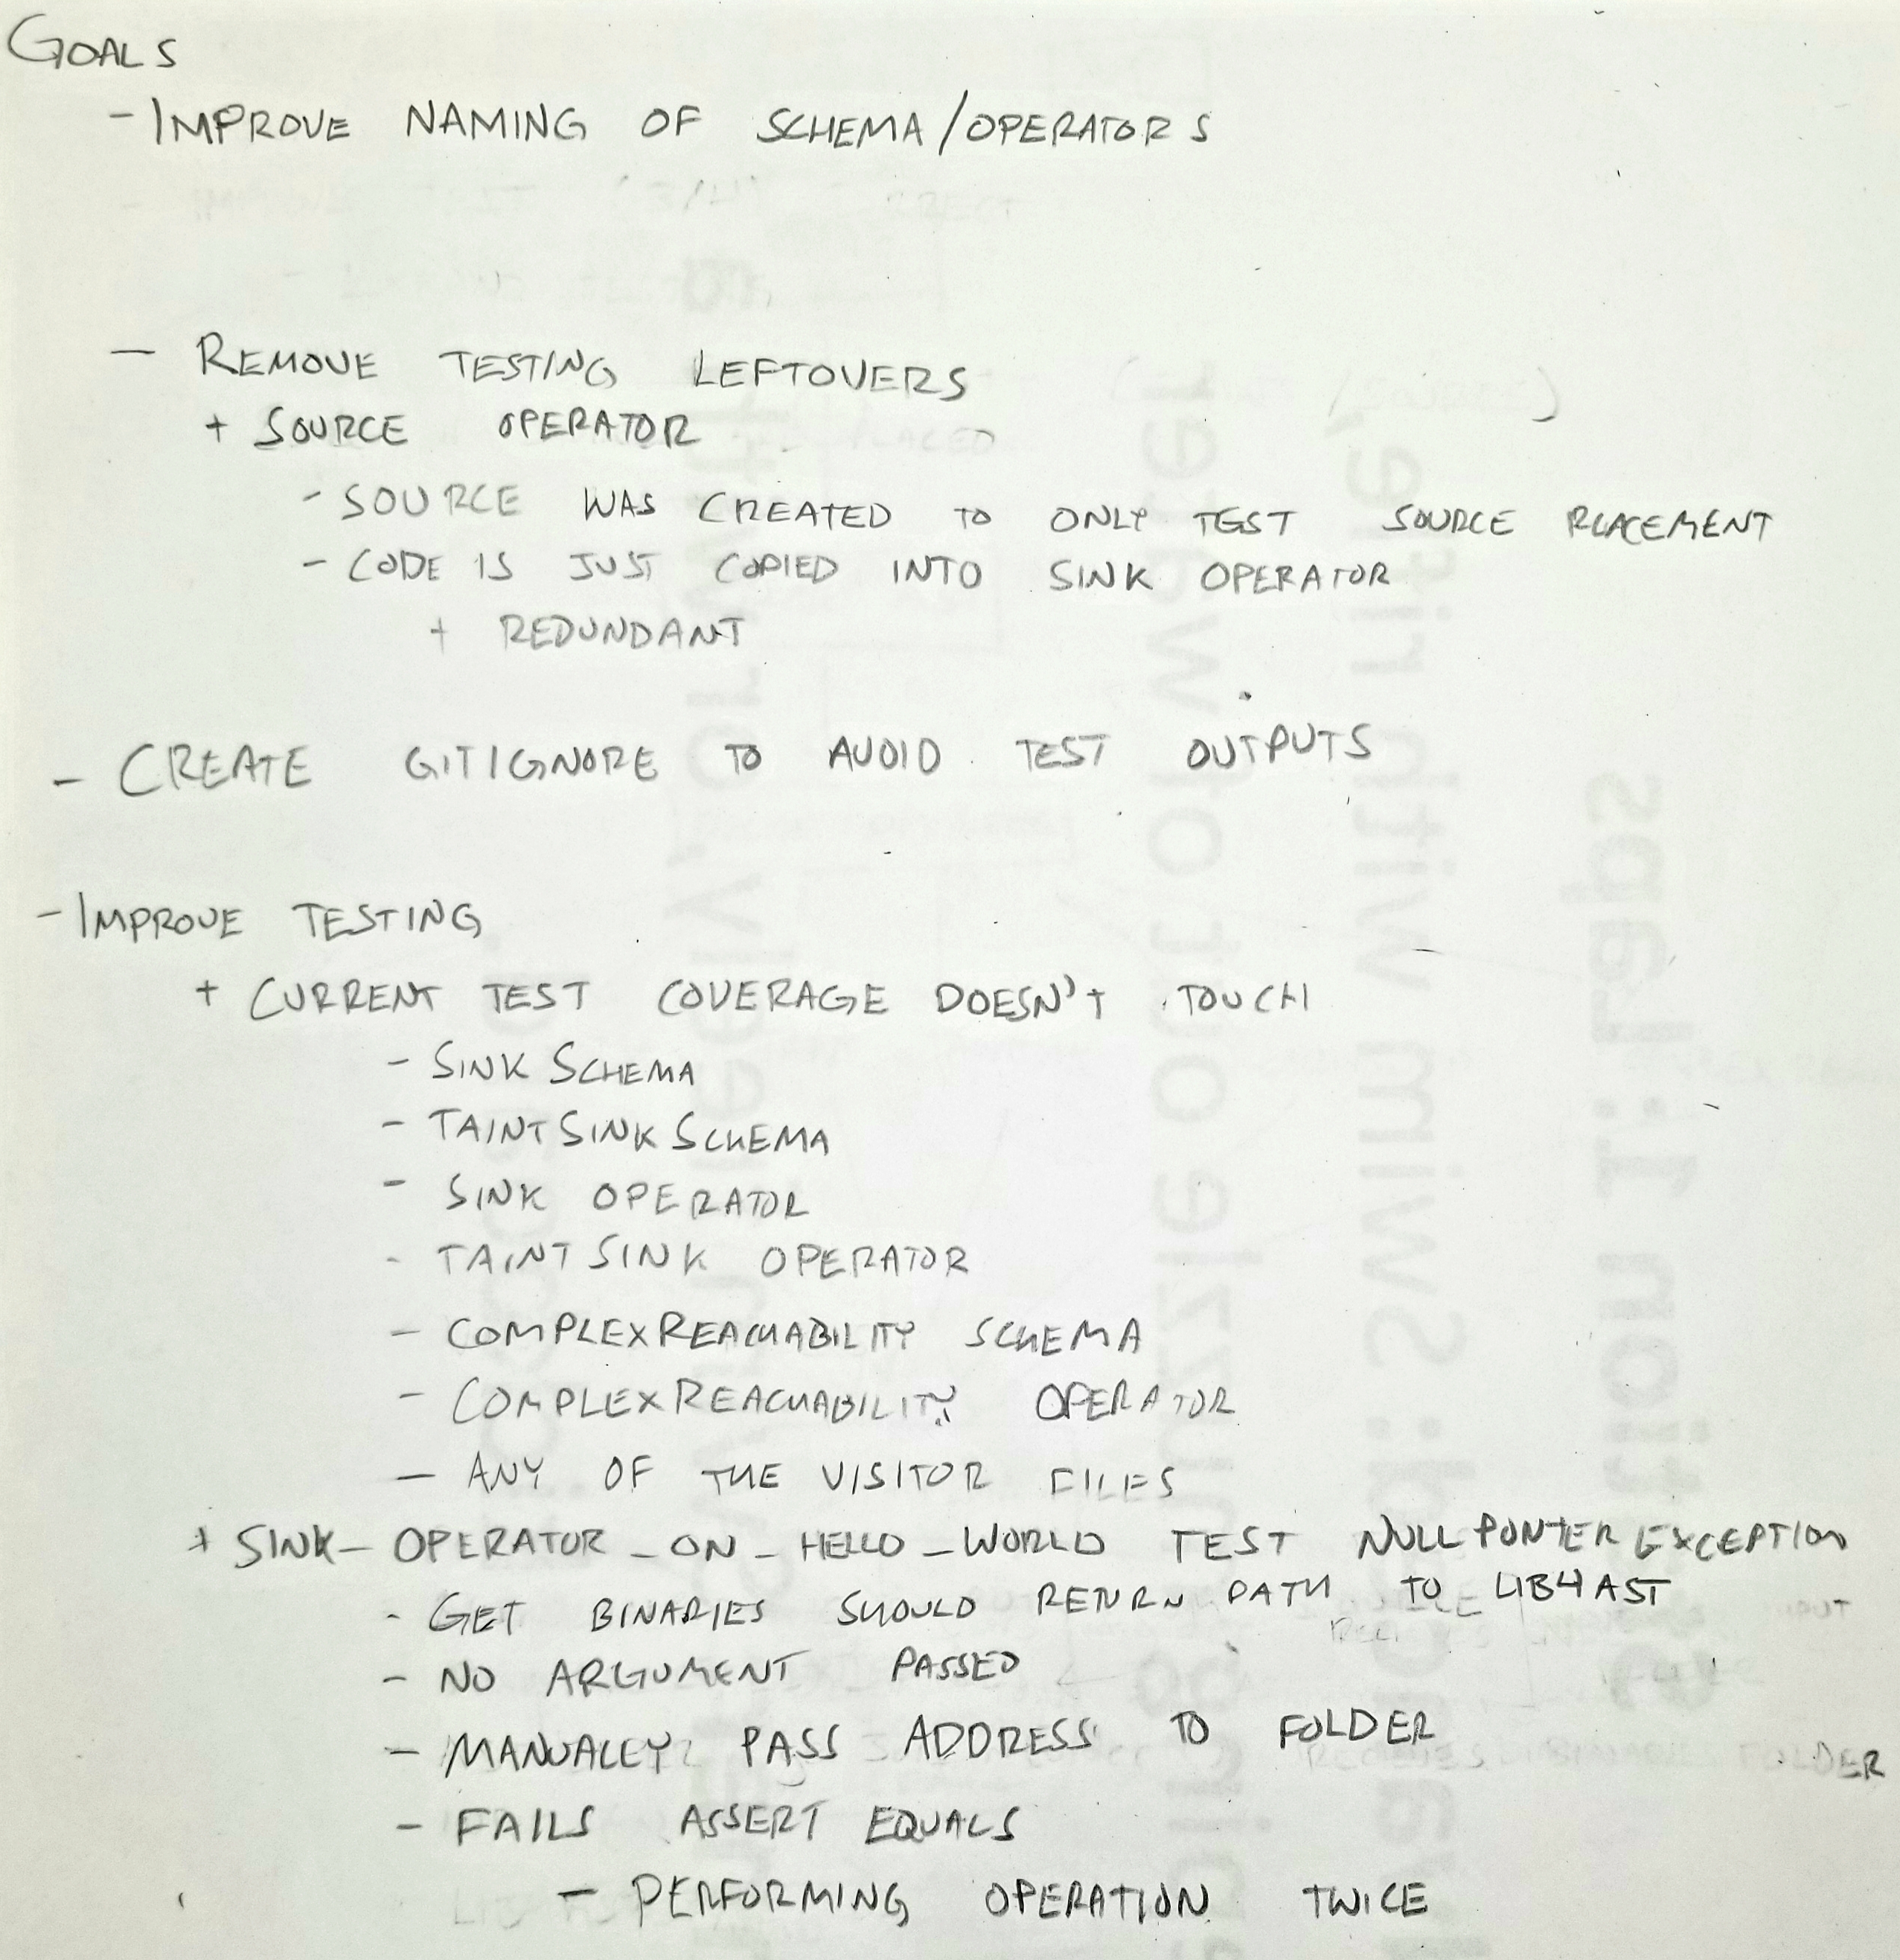 GOALS
- IMPROVE NAMING OF SCHEMA/OPERATORS
- REMOVE TESTING LEFTOVERS
+ SOURCE OPERATOR
- SOURCE WAS CREATED TO ONLY TEST SOURCE PLACEMENT
- CODE IS JUST COPIED INTO SINK OPERATOR
+ REDUNDANT
- CREATE GITIGNORE TO AVOID TEST OUTPUTS
- IMPROVE TESTING
+ CURRENT TEST COVERAGE DOESN'T TOUCH
- SINKSCHEMA
- TAINTSINKSCHEMA
- SINK OPERATOR
- TAINTSINK OPERATOR
- COMPLEXREACHABILITY SCHEMA
- COMPLEXREACHABILITY OPERATOR
- ANY OF THE VISITOR FILES
+ SINK_OPERATOR_ON_HELLO_WORLD TEST NULLPONTEREXCEPTION
- GET BINARIES SHOULD RETURN PATH TO LIB4AST
- NO ARGUMENT PASSED
- MANUALLY PASS ADDRESS TO FOLDER
- FAILS ASSERT EQUALS
- PERFORMING OPERATION TWICE